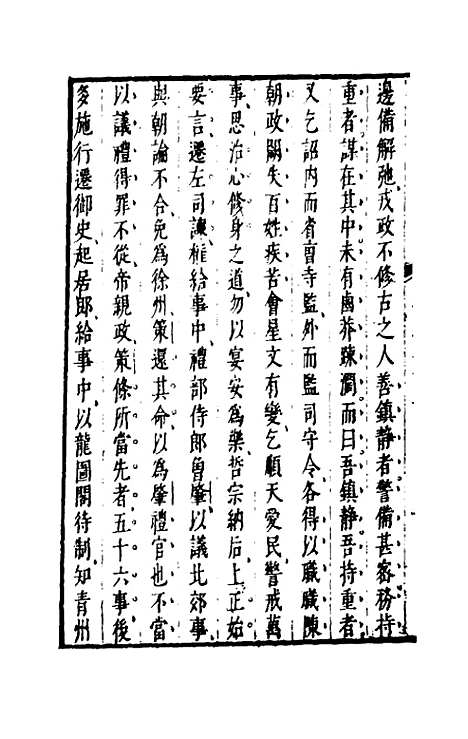 邊備解弛戎政不修古之人善鎮靜者警備甚密務持
重者謀在其中未有鹵莽踈濶而曰吾鎮靜吾持重者
又乞詔内而省曹寺監外而監司守令各得以職陳
朝政闕失百姓疾苦會星文有變乞順天愛民警戒萬
事思治心修身之道勿以宴安為樂哲宗納后上正始
要言遷左司諫權給事中禮部侍郎魯肇以議北郊事
與朝論不合免為徐州策還其命以為肇禮官也不當
以議禮得罪不從帝親政策條所當先者五十六事後
多施行遷御史起居郎給事中以龍圖閣待制知青州